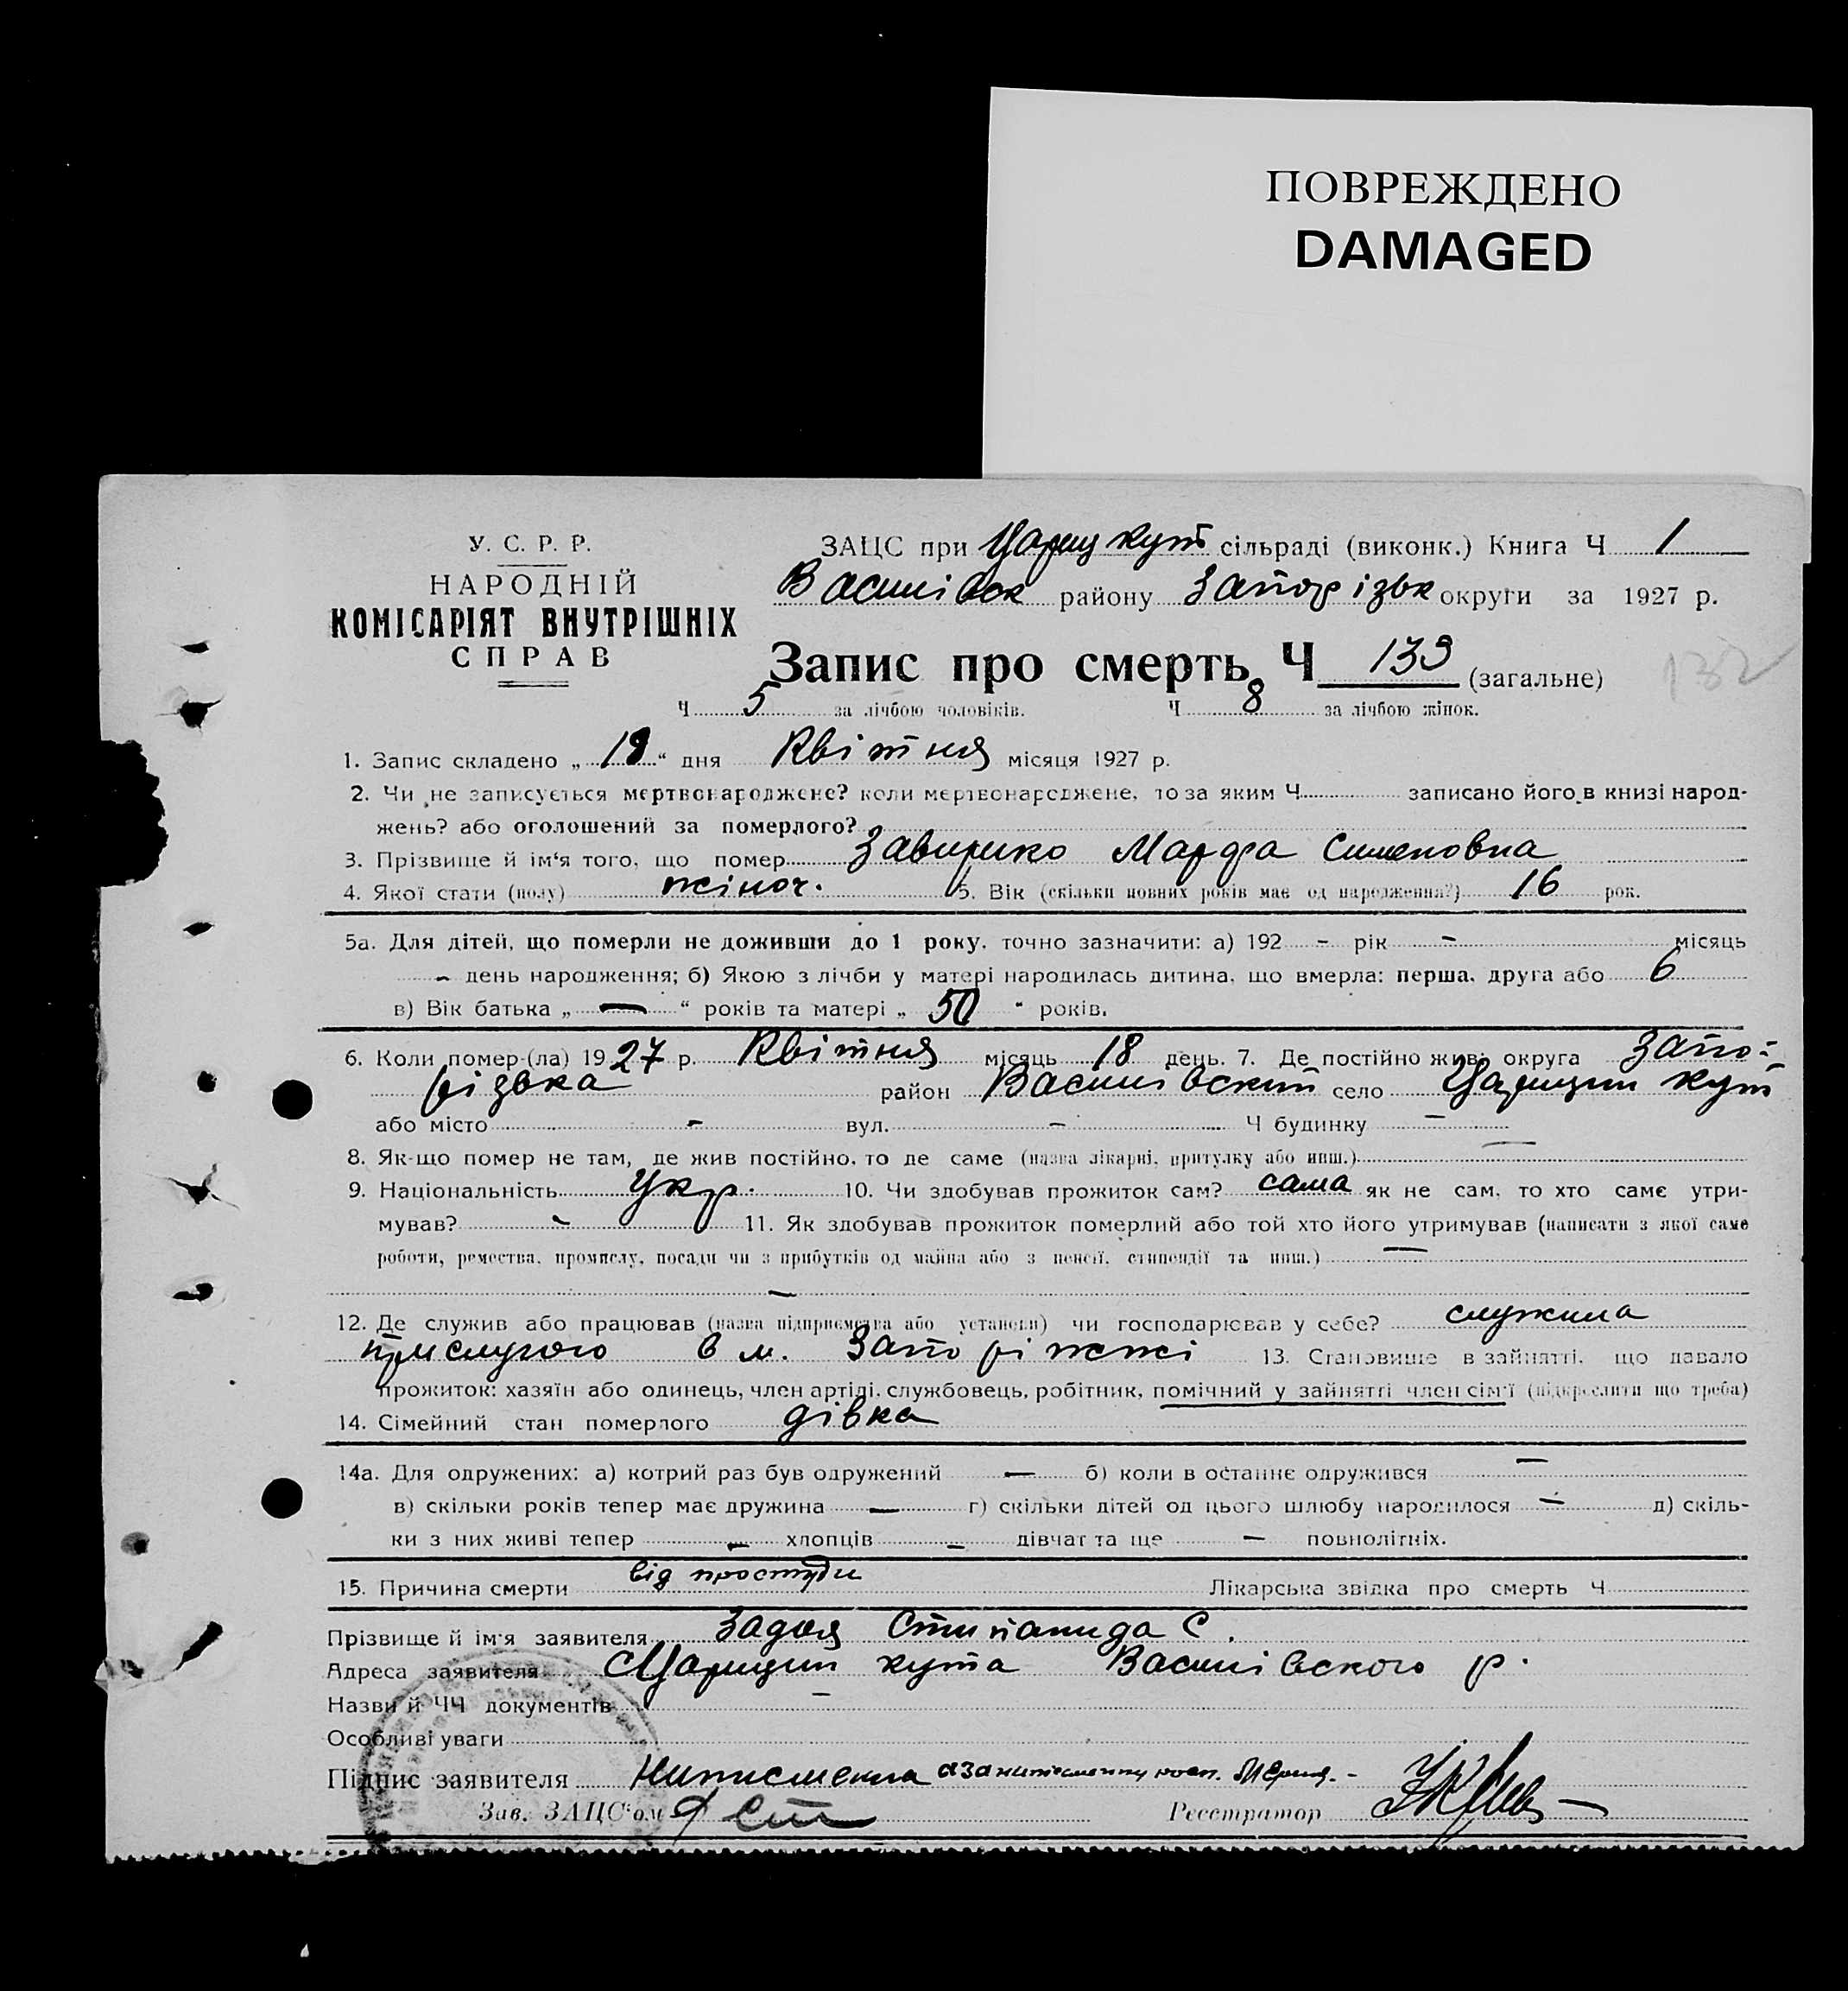 ПОВРЕЖДЕНО
DAMAGED
У. С. Р. Р.
НАРОДНІЙ
КОМІСАРІЯТ ВНУТРІШНІХ
СПРАВ
ЗАЦС при Цариц кут сільраді (виконк.) Книга Ч 1
Василівськ району Запорізьк округи за 1927 р.
Запис про смерть Ч 133 (загальне) 132
Ч 5 за лічбою чоловіків. Ч 8 за лічбою жінок.
1. Запис складено „ 19 “ дня Квітня місяця 1927 р.
2. Чи не записується мертвонароджене? коли мертвонароджене, то за яким Ч записано його в книзі народ-
жень? або оголошений за померлого?
3. Прізвище й ім‘я того, що помер Завирико Марфа Сименовна
4. Якої стати (полу) жіноч. 5. Вік (скільки повних років має од народження?) 16 рок.
5а. Для дітей, що померли не доживши до 1 року, точно зазначити: а) 192 - рік - місяць
- день народження; б) Якою з лічби у матері народилась дитина, що вмерла: перша, друга або 6
в) Вік батька „ — “ років та матері „ 50 “ років.
6. Коли помер-(ла) 1927 р. Квітня місяць 18 день. 7. Де постійно жив: округа Запо-
різька район Василівский село Царицин кут
або місто - вул. - Ч будинку -
8. Як-що помер не там, де жив постійно, то де саме (назва лікарні, притулку або инш.) —
9. Національність Укр. 10. Чи здобував прожиток сам? сама як не сам, то хто саме утри-
мував? - 11. Як здобував прожиток померлий або той хто його утримував (написати з якої саме
роботи, ремества, промислу, посади чи з прибутків од майна або з пенсії, стипендії та инш.) —
—
12. Де служив або працював (назва підприємства або установи) чи господарював у себе? служила
прислугою в м. Запоріжжі 13. Становище в зайнятті, що давало
прожиток: хазяїн або одинець, член артілі, службовець, робітник, помічний у зайнятті член сім‘ї (підкреслити що треба)
14. Сімейний стан померлого дівка
14а. Для одружених: а) котрий раз був одружений — б) коли в останнє одружився —
в) скільки років тепер має дружина — г) скільки дітей од цього шлюбу народилося — д) скіль-
ки з них живі тепер — хлопців — дівчат та ще — повнолітніх.
15. Причина смерти від простуди Лікарська звідка про смерть Ч
Прізвище й ім‘я заявителя Задоя Стипанида С.
Адреса заявителя Царицин кута Василівского р.
Назви й ЧЧ документів —
Особливі уваги
Підпис заявителя Ниписменна а за
Зав. ЗАЦС‘ом Реєстратор